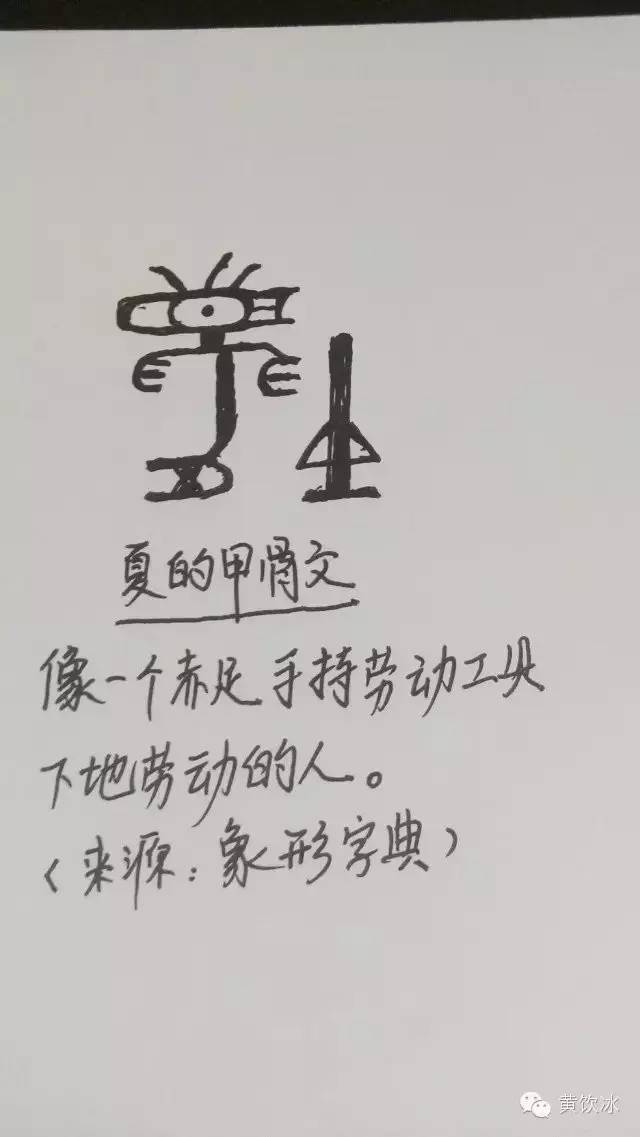 夏的甲骨文
像一个赤足手持劳动工具
下地劳动的人。
（来源：象形字典）
黄饮冰